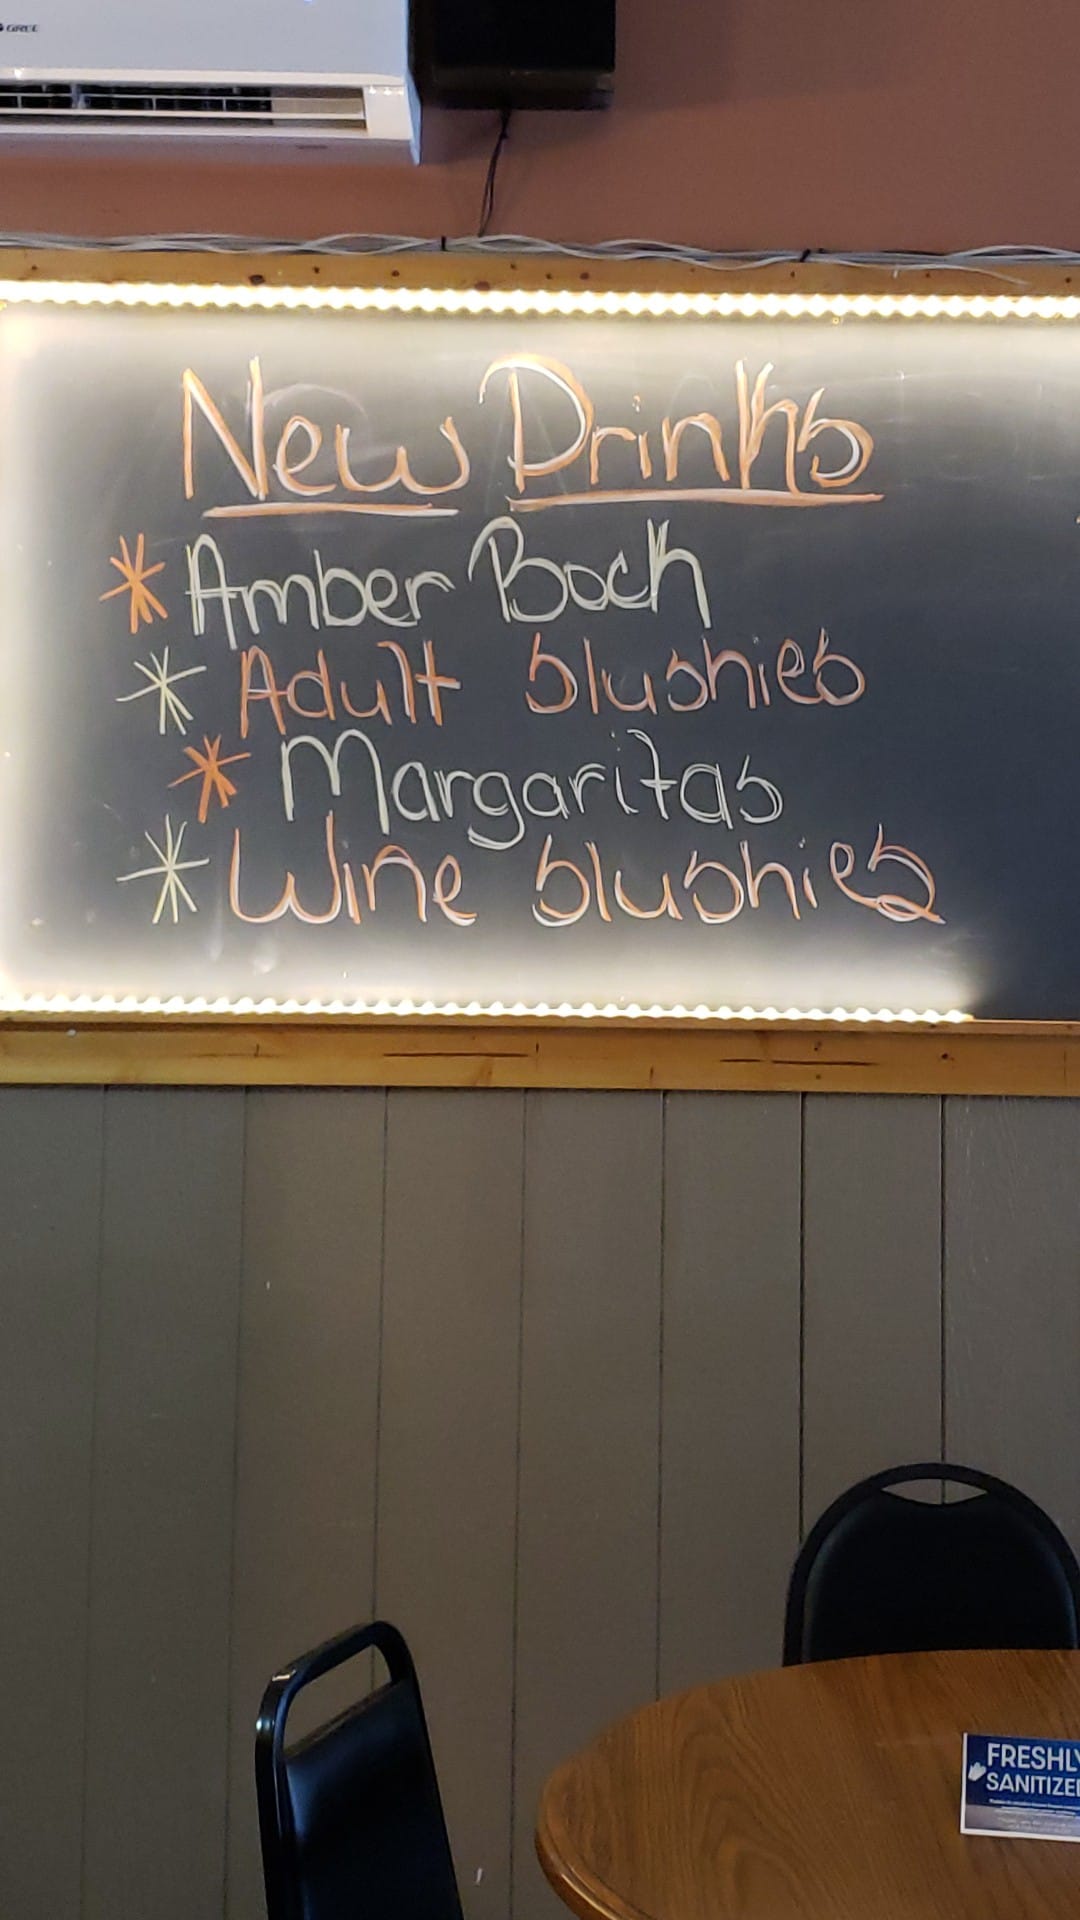 GREE
New Drinks
* Amber Boch
* Adult slushies
* Margaritas
* Wine slushies
FRESHLY
SANITIZED